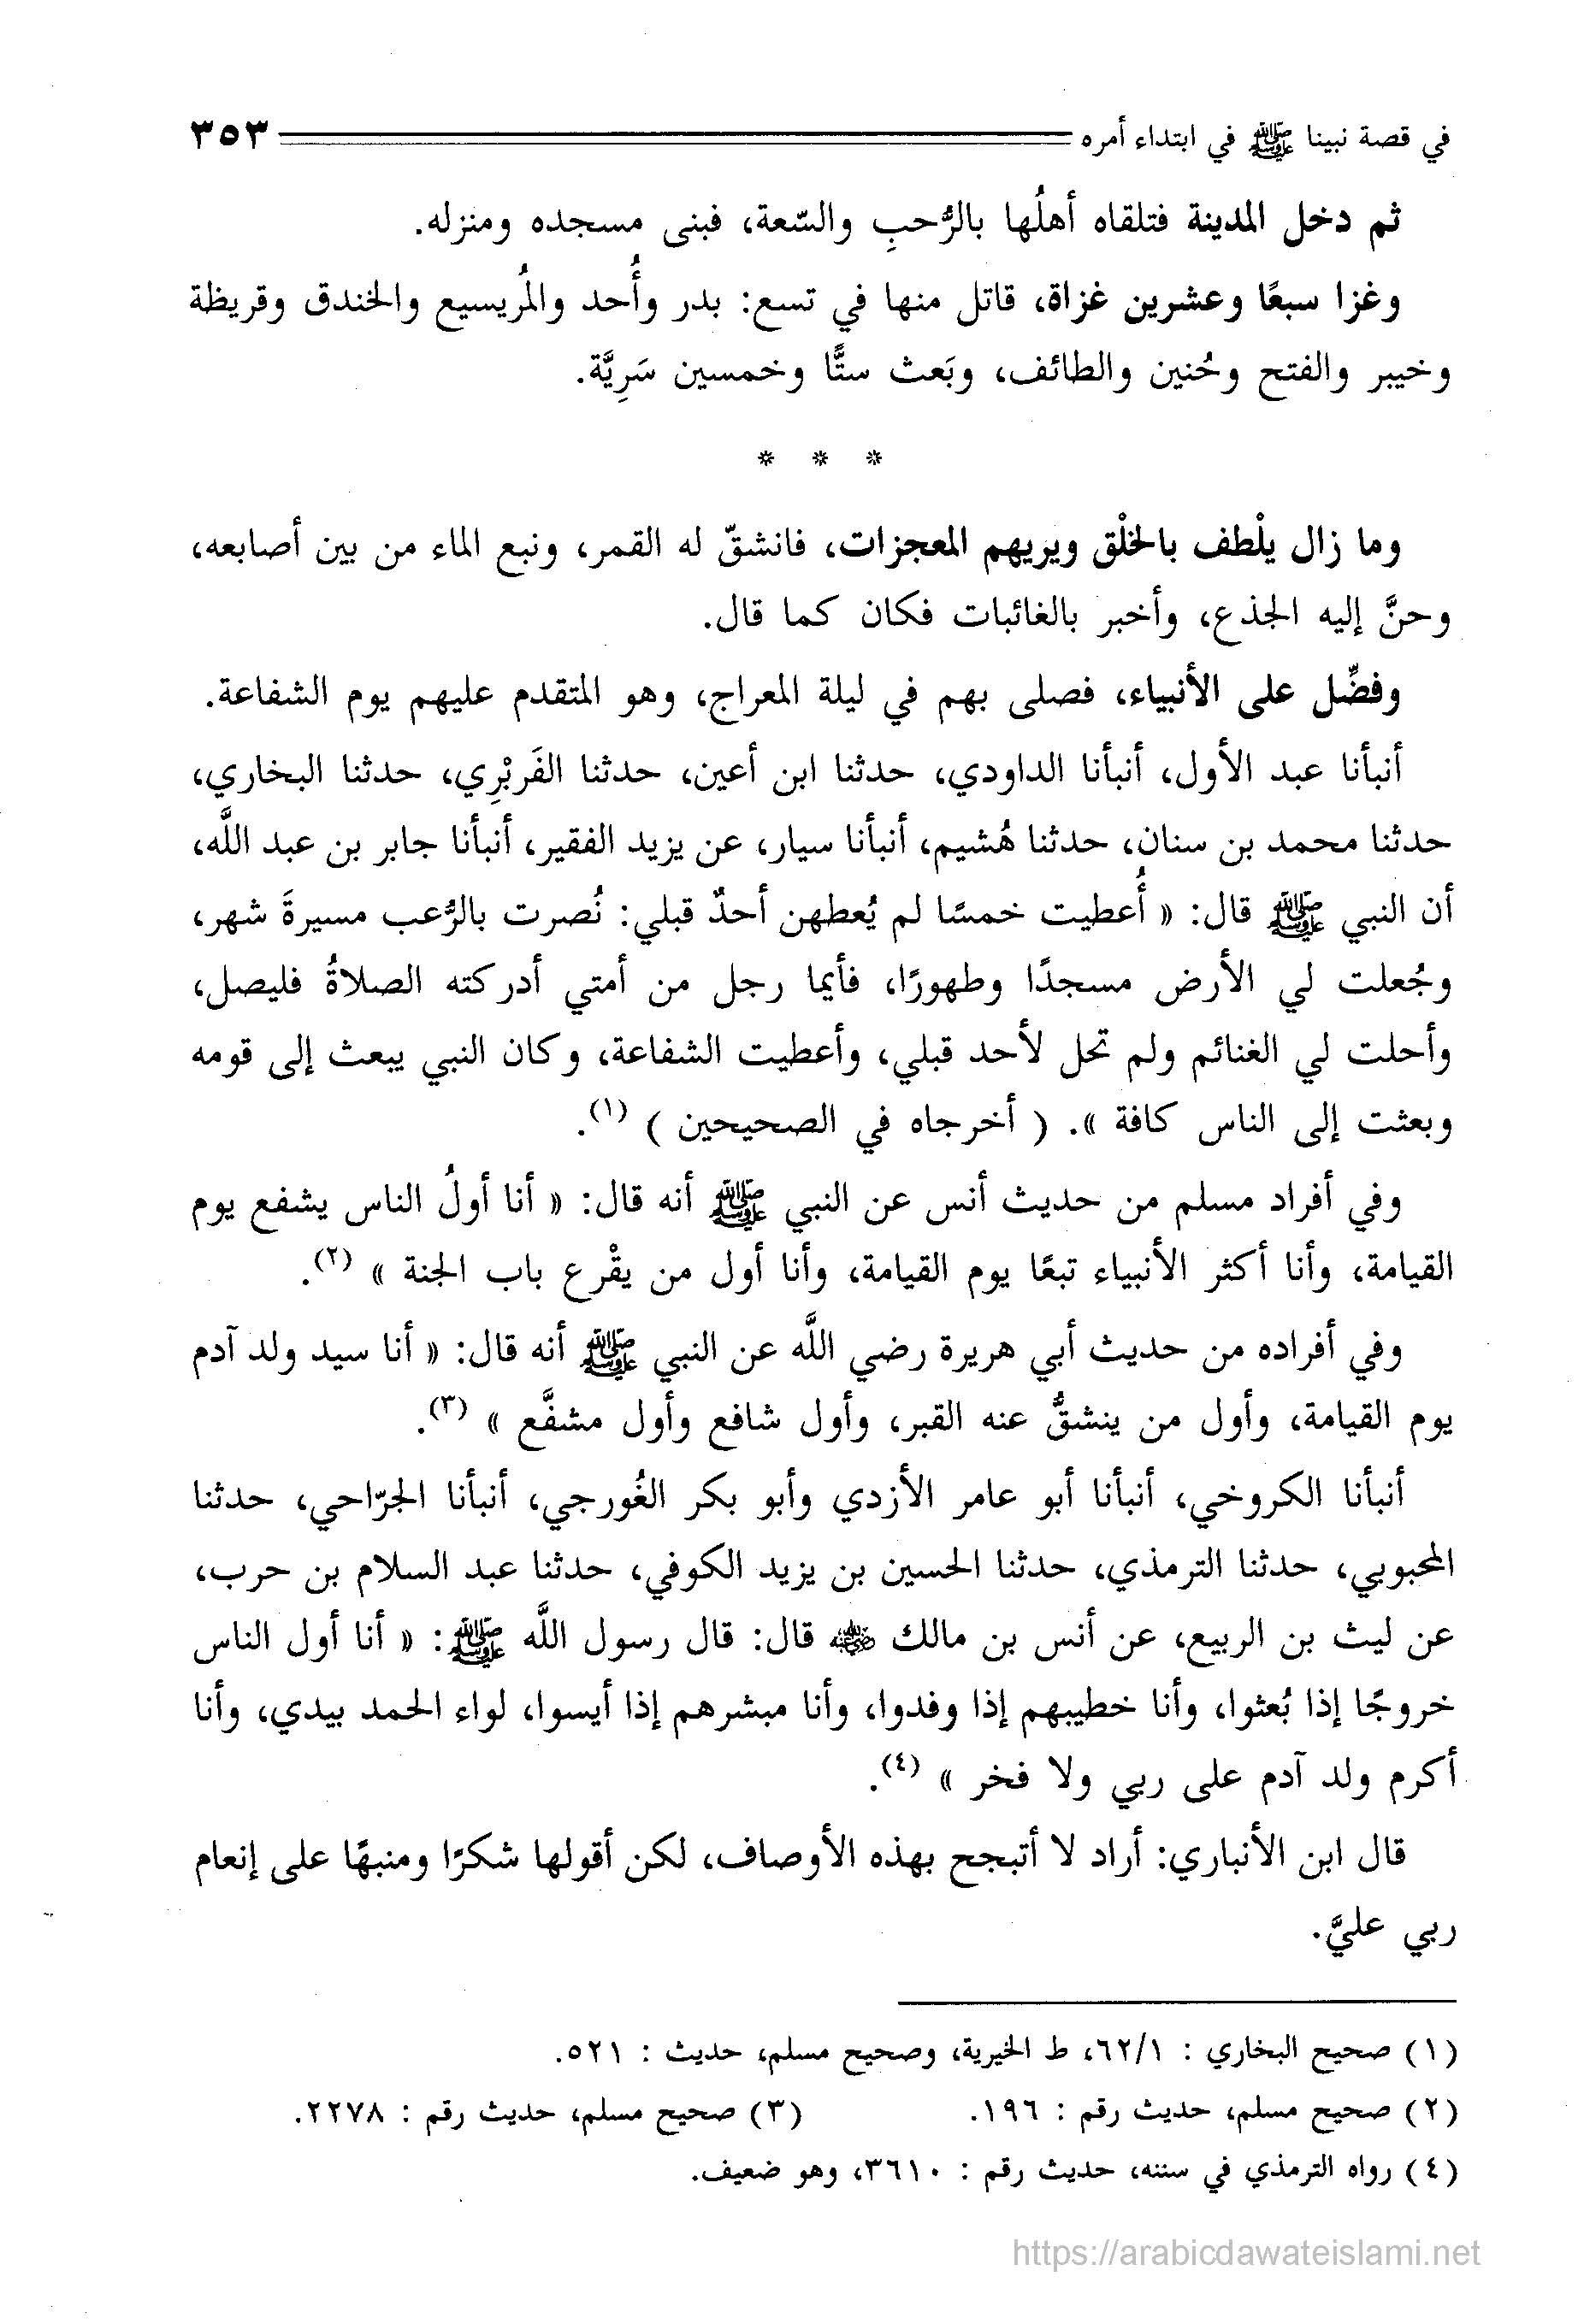 في قصة نبينا ﷺ في ابتداء أمره ٣٥٣
ثم دخل المدينة فتلقاه أهلُها بالرُّحبِ والسّعة، فبنى مسجده ومنزله.
وغزا سبعًا وعشرين غزاة، قاتل منها في تسع: بدر وأُحد والمُريسيع والخندق وقريظة
وخيبر والفتح وحُنين والطائف، وبَعث ستًّا وخمسين سَرِيَّة.
* * *
وما زال يلْطف بالخلْق ويريهم المعجزات، فانشقّ له القمر، ونبع الماء من بين أصابعه،
وحنَّ إليه الجذع، وأخبر بالغائبات فكان كما قال.
وفضِّل على الأنبياء، فصلى بهم في ليلة المعراج، وهو المتقدم عليهم يوم الشفاعة.
أنبأنا عبد الأول، أنبأنا الداودي، حدثنا ابن أعين، حدثنا الفَربْرِي، حدثنا البخاري،
حدثنا محمد بن سنان، حدثنا هُشيم، أنبأنا سيار، عن يزيد الفقير، أنبأنا جابر بن عبد اللَّه،
أن النبي ﷺ قال: « أُعطيت خمسًا لم يُعطهن أحدٌ قبلي: نُصرت بالرُّعب مسيرةَ شهر،
وجُعلت لي الأرض مسجدًا وطهورًا، فأيما رجل من أمتي أدركته الصلاةُ فليصل،
وأحلت لي الغنائم ولم تحل لأحد قبلي، وأعطيت الشفاعة، وكان النبي يبعث إلى قومه
وبعثت إلى الناس كافة ». ( أخرجاه في الصحيحين ) (١).
وفي أفراد مسلم من حديث أنس عن النبي ﷺ أنه قال: « أنا أولُ الناس يشفع يوم
القيامة، وأنا أكثر الأنبياء تبعًا يوم القيامة، وأنا أول من يقْرع باب الجنة » (٢).
وفي أفراده من حديث أبي هريرة رضي اللَّه عن النبي ﷺ أنه قال: « أنا سيد ولد آدم
يوم القيامة، وأول من ينشقُّ عنه القبر، وأول شافع وأول مشفَّع » (٣).
أنبأنا الكروخي، أنبأنا أبو عامر الأزدي وأبو بكر الغُورجي، أنبأنا الجرّاحي، حدثنا
المحبوبي، حدثنا الترمذي، حدثنا الحسين بن يزيد الكوفي، حدثنا عبد السلام بن حرب،
عن ليث بن الربيع، عن أنس بن مالك رضي الله عنه قال: قال رسول اللَّه ﷺ: « أنا أول الناس
خروجًا إذا بُعثوا، وأنا خطيبهم إذا وفدوا، وأنا مبشرهم إذا أيسوا، لواء الحمد بيدي، وأنا
أكرم ولد آدم على ربي ولا فخر » (٤).
قال ابن الأنباري: أراد لا أتبجح بهذه الأوصاف، لكن أقولها شكرًا ومنبهًا على إنعام
ربي عليَّ.
(١) صحيح البخاري : ٦٢/١، ط الخيرية، وصحيح مسلم، حديث : ٥٢١.
(٢) صحيح مسلم، حديث رقم : ١٩٦. (٣) صحيح مسلم، حديث رقم : ٢٢٧٨.
(٤) رواه الترمذي في سننه، حديث رقم : ٣٦١٠، وهو ضعيف.
https://arabicdawateislami.net